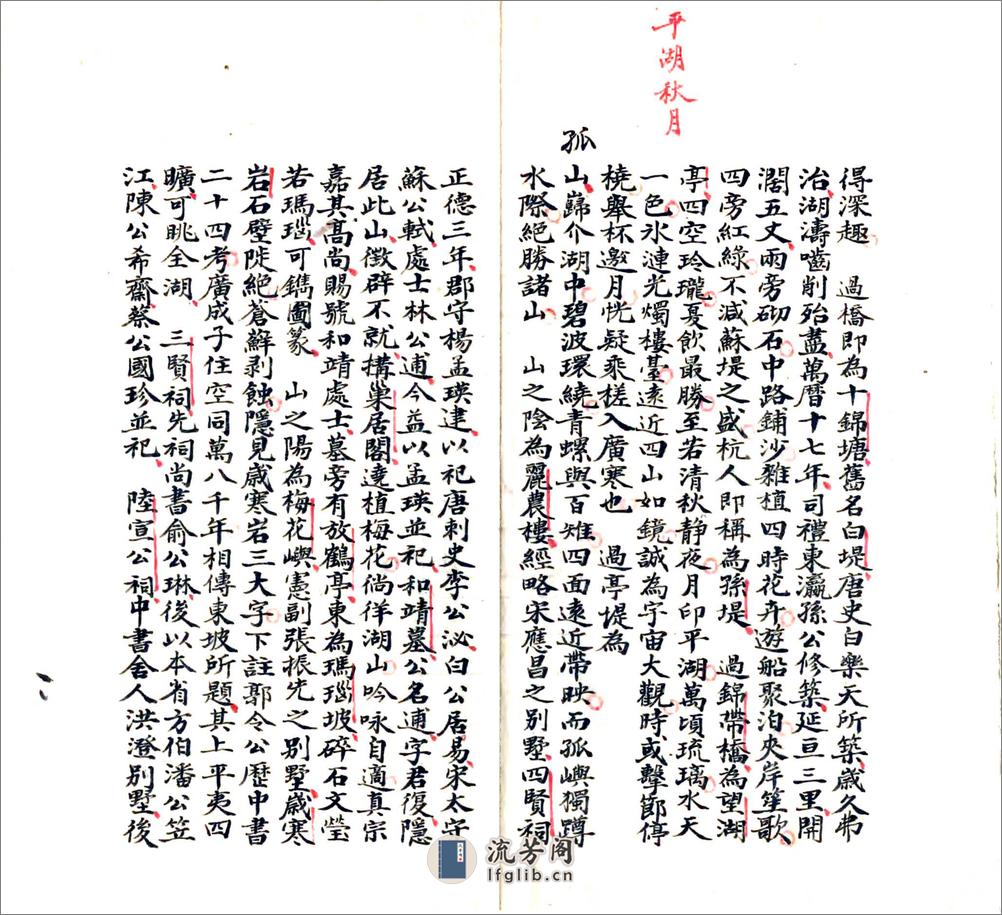 平湖秋月
得深趣　過橋即為十錦塘舊名白堤唐史白樂天所築歲久弗
治湖濤嚙削殆盡萬曆十七年司禮東瀛孫公修築延亘三里開
濶五丈兩旁砌石中路鋪沙雜植四時花卉遊船聚泊夾岸笙歌
四旁紅綠不減蘇堤之盛杭人即稱為孫堤　過錦帶橋為望湖
亭四空玲瓏憂飲最勝至若清秋靜夜月印平湖萬頃琉璃水天
一色氷漣光燭樓臺遠近四山如鏡誠為宇宙大觀時或擊節停
橈舉杯邀月恍疑乘槎入廣寒也　過亭堤為
孤山巋介湖中碧波環繞青螺與百雉四面遠近帶映而孤嶼獨蹲
水際絕勝諸山　山之陰為麗農樓經略宋應昌之別墅四賢祠
正德三年郡守楊孟瑛建以祀唐刺史李公泌白公居易宋太守
蘇公軾處士林公逋今益以孟瑛並祀和靖墓公名逋字君復隱
居此山徵辟不就搆巢居閣遶植梅花徜徉湖山吟咏自適真宗
嘉其高尚賜號和靖處士墓旁有放鶴亭東為瑪瑙坡碎石文瑩
若瑪瑙可鐫圖篆　山之陽為梅花嶼憲副張振先之別墅歲寒
岩石壁陡絕蒼蘚剥蝕隱見歲寒岩三大字下註郭令公歷中書
二十四考廣成子住空同萬八千年相傳東坡所題其上平夷四
曠可眺全湖　三賢祠先祠尚書俞公琳後以本省方伯潘公笠
江陳公希齋蔡公國珍並祀　陸宣公祠中書舍人洪澄別墅後
流芳阁
lfglib.cn